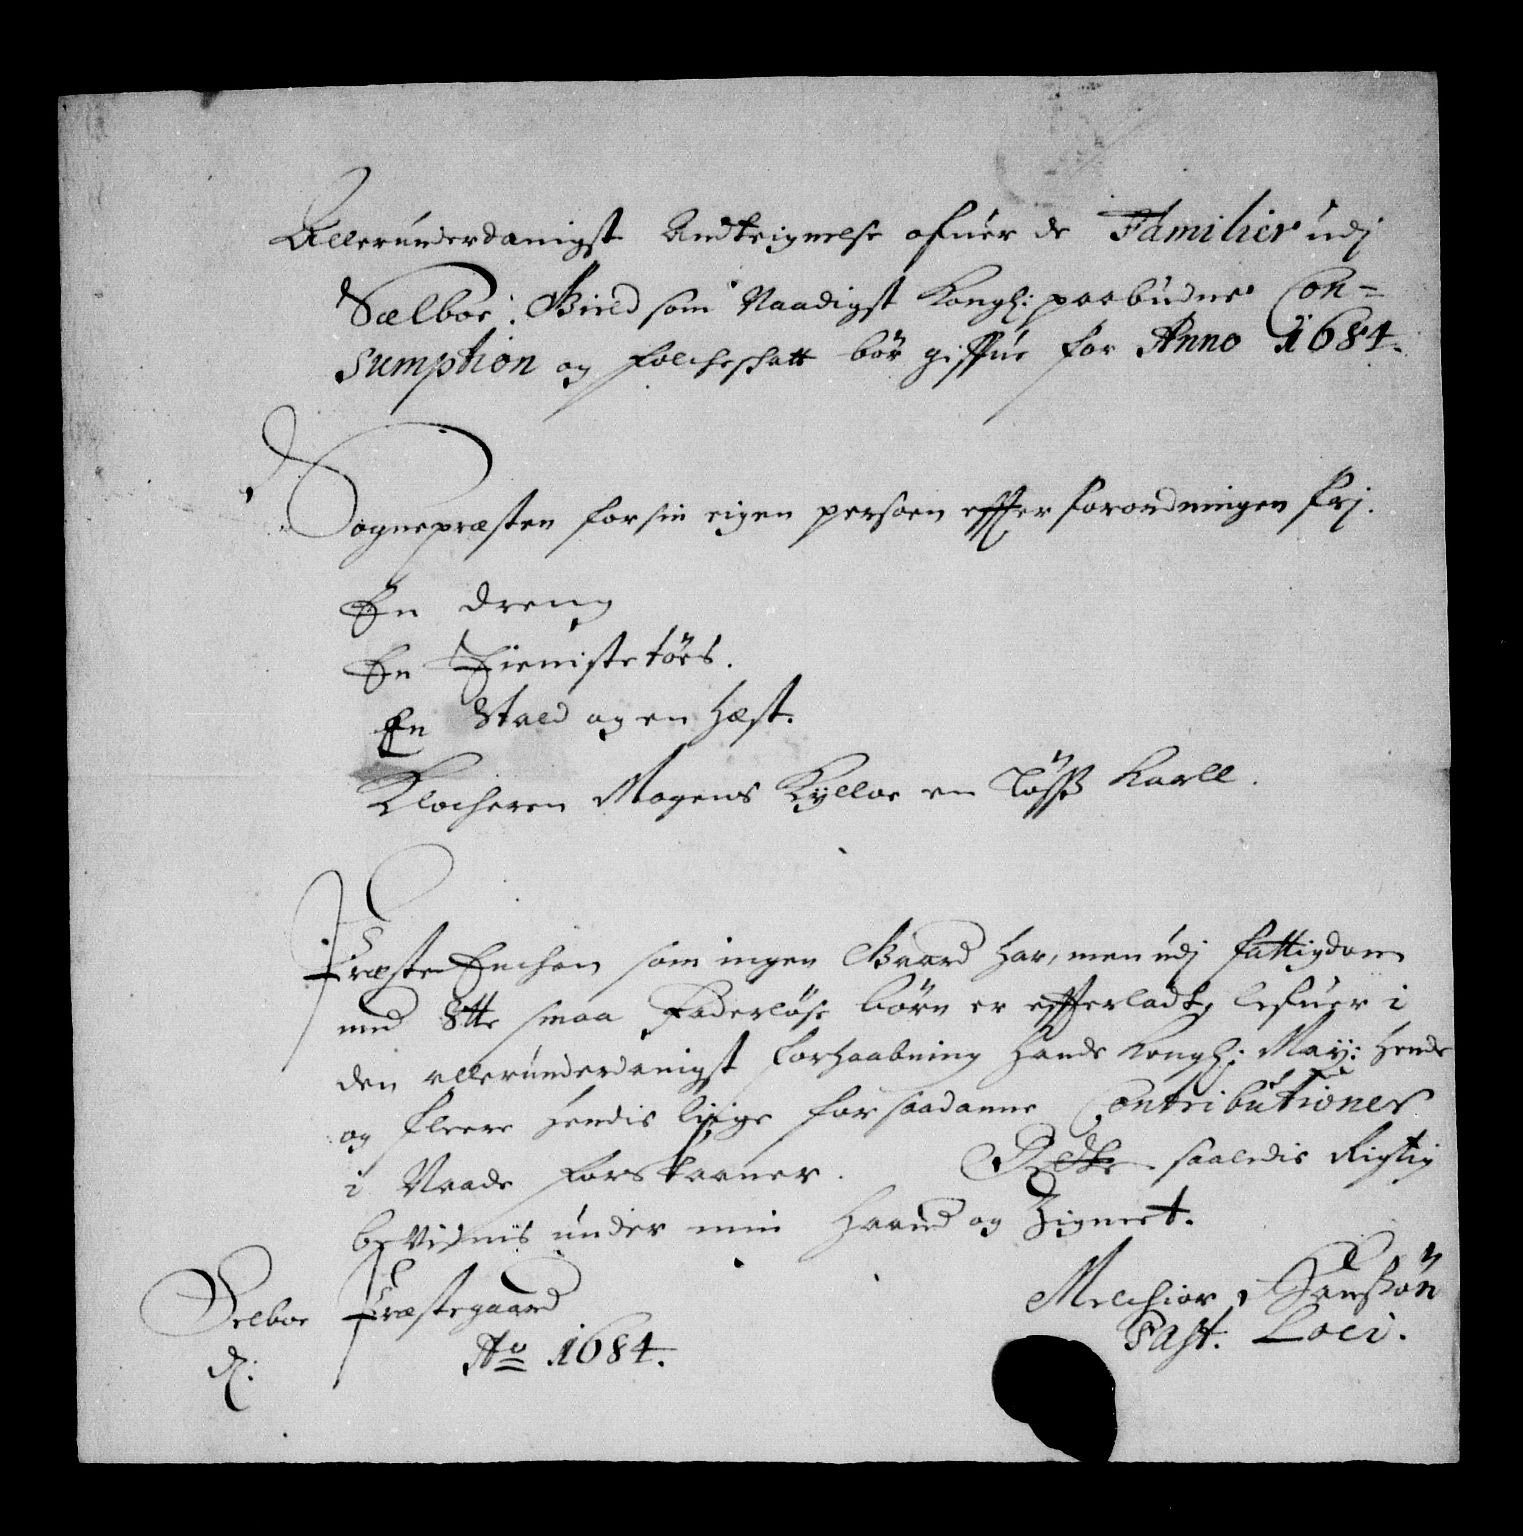 Allerunderdanigst Andteignelse ofuer de Familier udj
Sælboe Gield som Naadigst Kongl: paabudne Con=
sumption og folcheschatt bör giffue for Anno 1684.
Sognepræsten for sin eigen persoen effter forordningen frj.
En dreng
En Tieniste töes.
En Stald og en hæst.
Klocheren Mogens Kylloe en Löss Karll.
Præste Enchen som ingen Gaard har, men udj fattigdom
med 8tte smaa Faderlöse börn er effterladt, lefuer i
den allerunderdanigst forhaabning Hands Kongl: May: hende
og fleere hendis liige for saadanne Contributioner
i Naade forskaaner. saaledis Rigtig
beVidnis under min Haand og Zignet.
Selboe Præstegaard Melchior Hanssön
d: Aº 1684. Past. Loci.